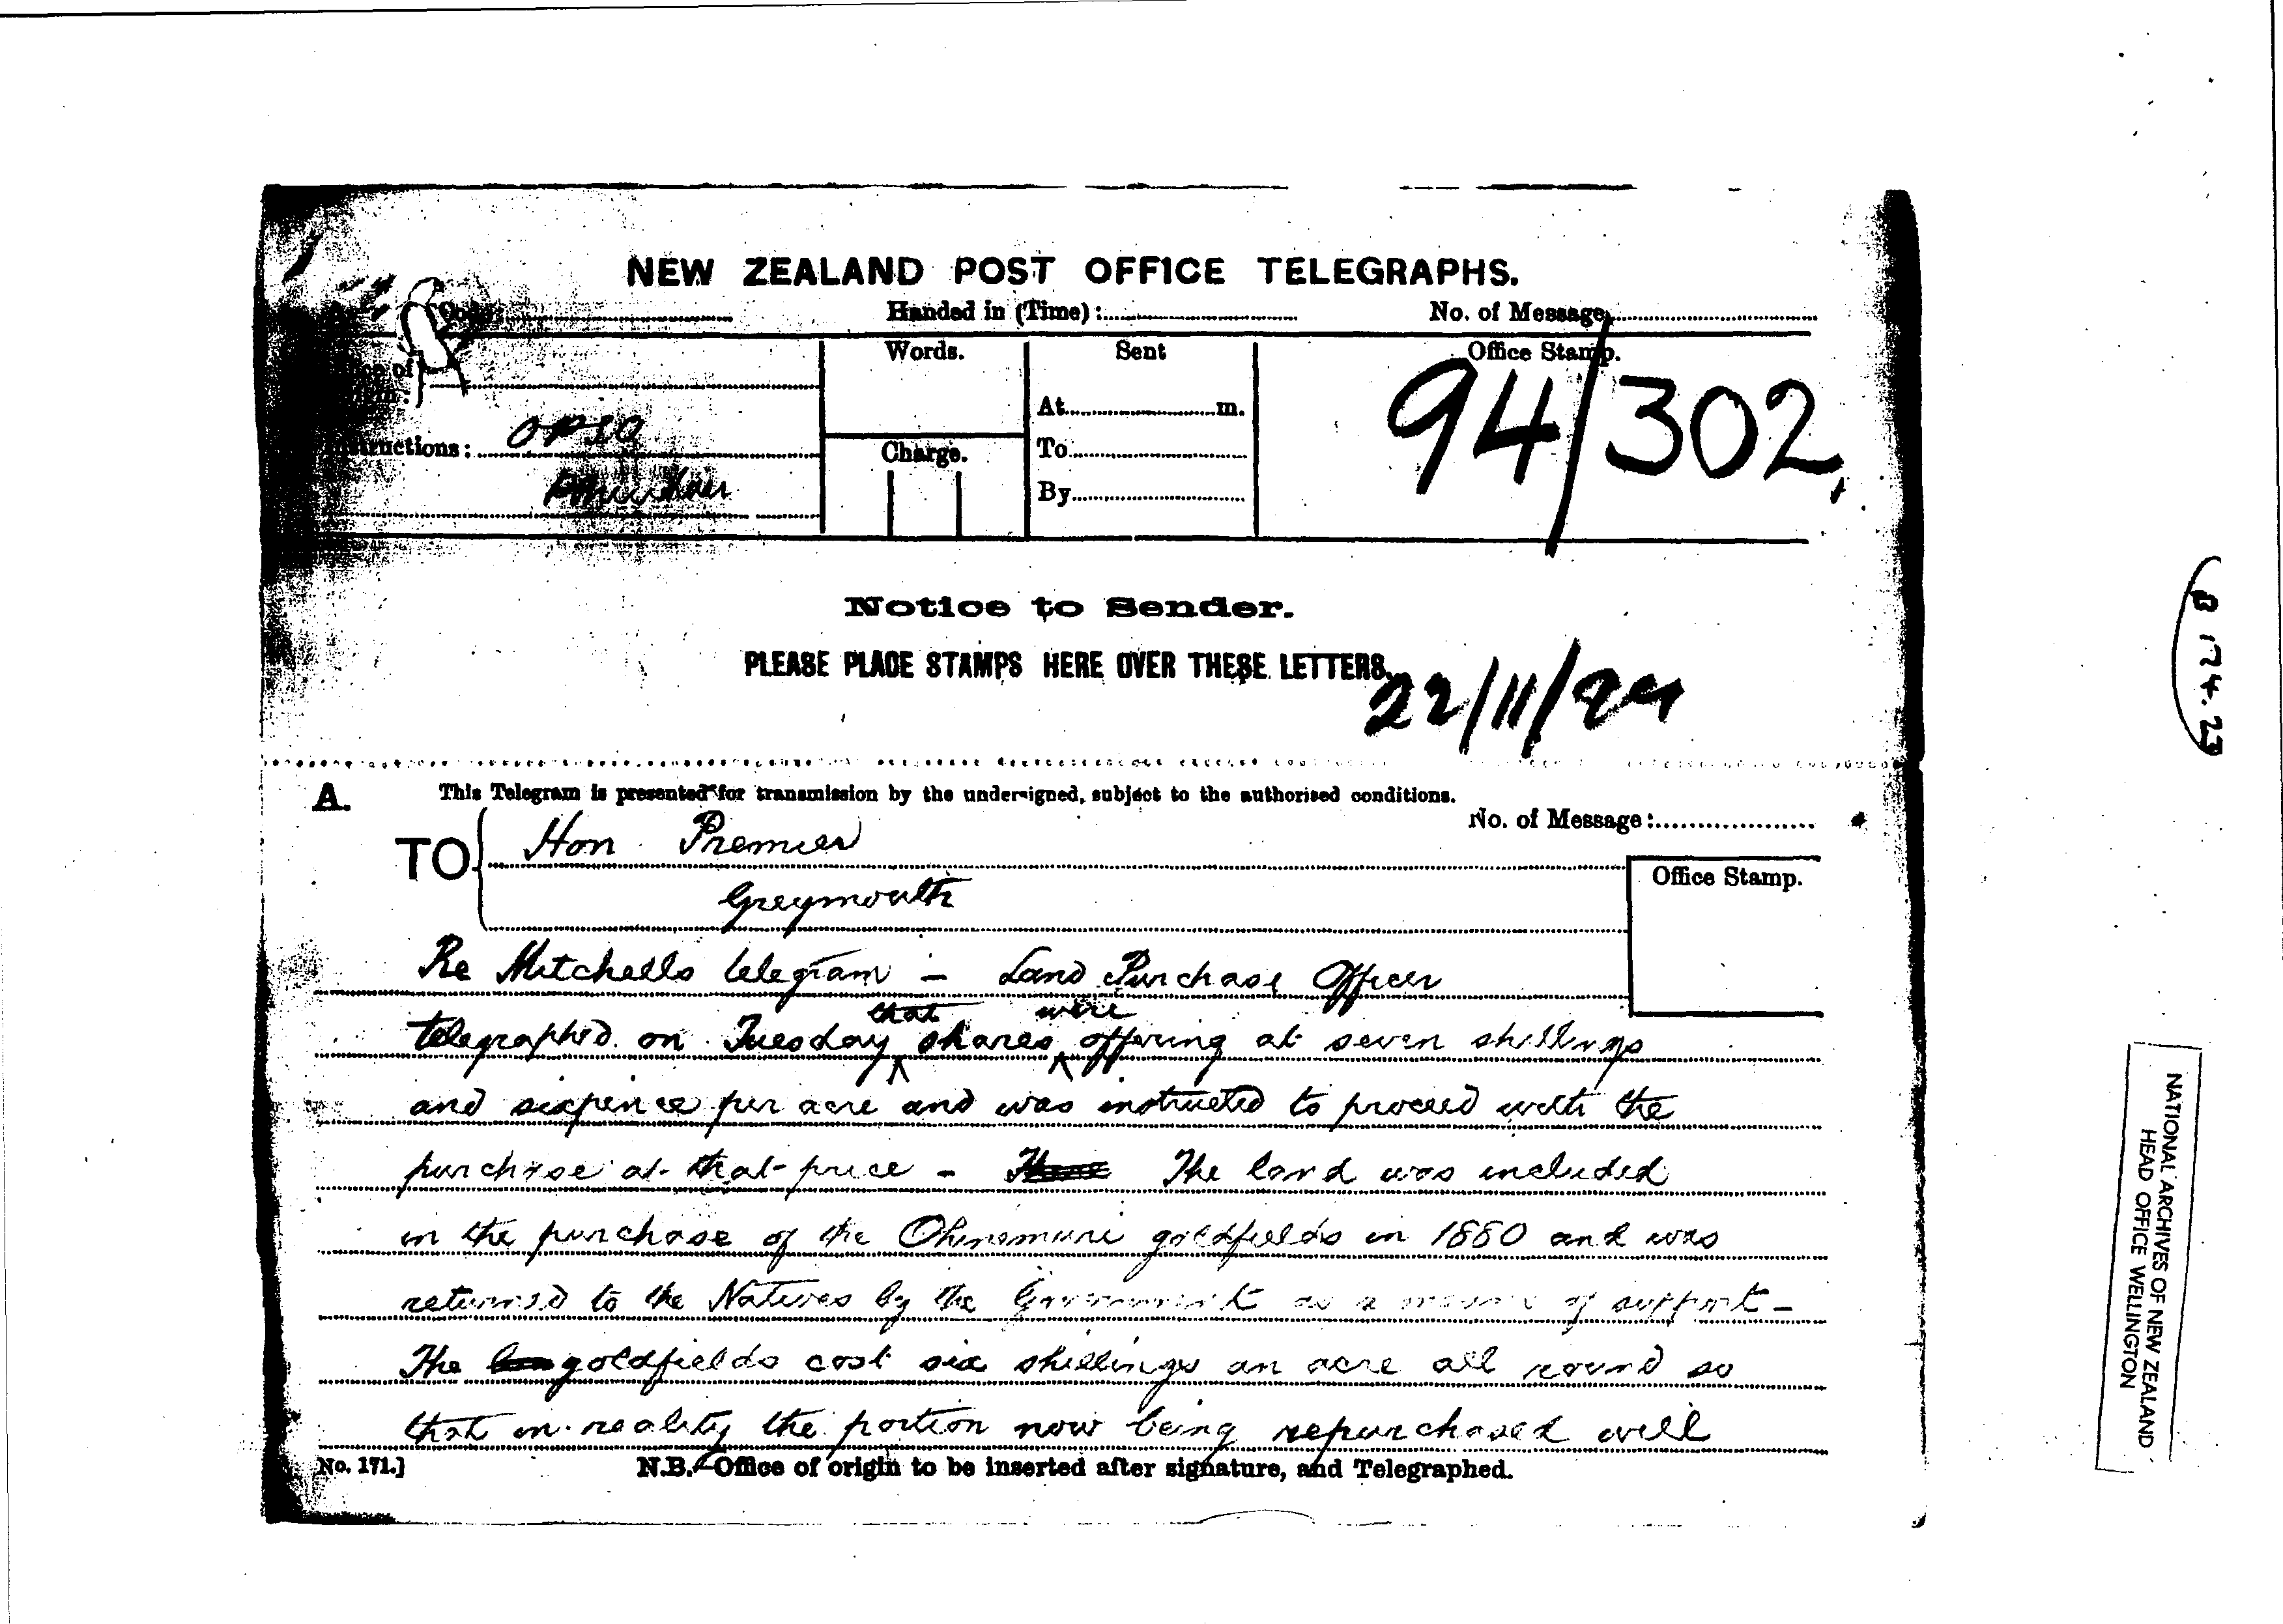 NEW ZEALAND POST OFFICE TELEGRAPHS.
Code: Handed in (Time): No. of Message,
Words. Sent Office Stamp.
At m.
Instructions: OPSO Charge. To
By
94/302
Notice to Sender.
PLEASE PLACE STAMPS HERE OVER THESE LETTERS.
22/11/94
A. This Telegram is presented for transmission by the undersigned, subject to the authorised conditions.
No. of Message:
TO Hon Premier
Greymouth
Office Stamp.
Re Mitchells telegram – Land Purchase Officer
telegraphed on Tuesday that shares were offering at seven shillings
and sixpence per acre and was instructed to proceed with the
purchase at that price – The land was included
in the purchase of the Ohinemuri goldfields in 1880 and was
returned to the Natives by the Government as a means of support –
The goldfields cost six shillings an acre all round so
that in reality the portion now being repurchased will
No. 171.] N.B.—Office of origin to be inserted after signature, and Telegraphed.
B 174.23
NATIONAL ARCHIVES OF NEW ZEALAND
HEAD OFFICE WELLINGTON